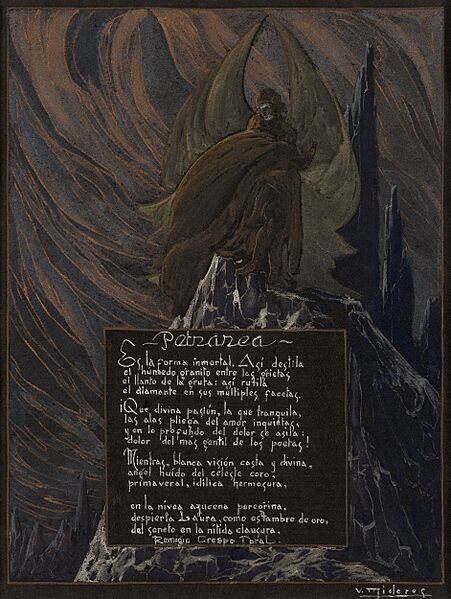 ~Petrarca~
Es la forma inmortal. Así destila
el húmedo granito entre las grietas
el llanto de la gruta: así rutila
el diamante en sus múltiples facetas.
¡Que divina pasión, la que tranquila,
las alas pliega del amor inquietas,
y en lo profundo del dolor se asila:
dolor del mas gentil de los poetas!
Mientras, blanca visión casta y divina,
angel huído del celeste coro,
primaveral, idílica hermosura,
en la nívea azucena peregrina,
despierta Laura, como estambre de oro,
del soneto en la nítida clausura.
Remigio Crespo Toral
V. Mideros